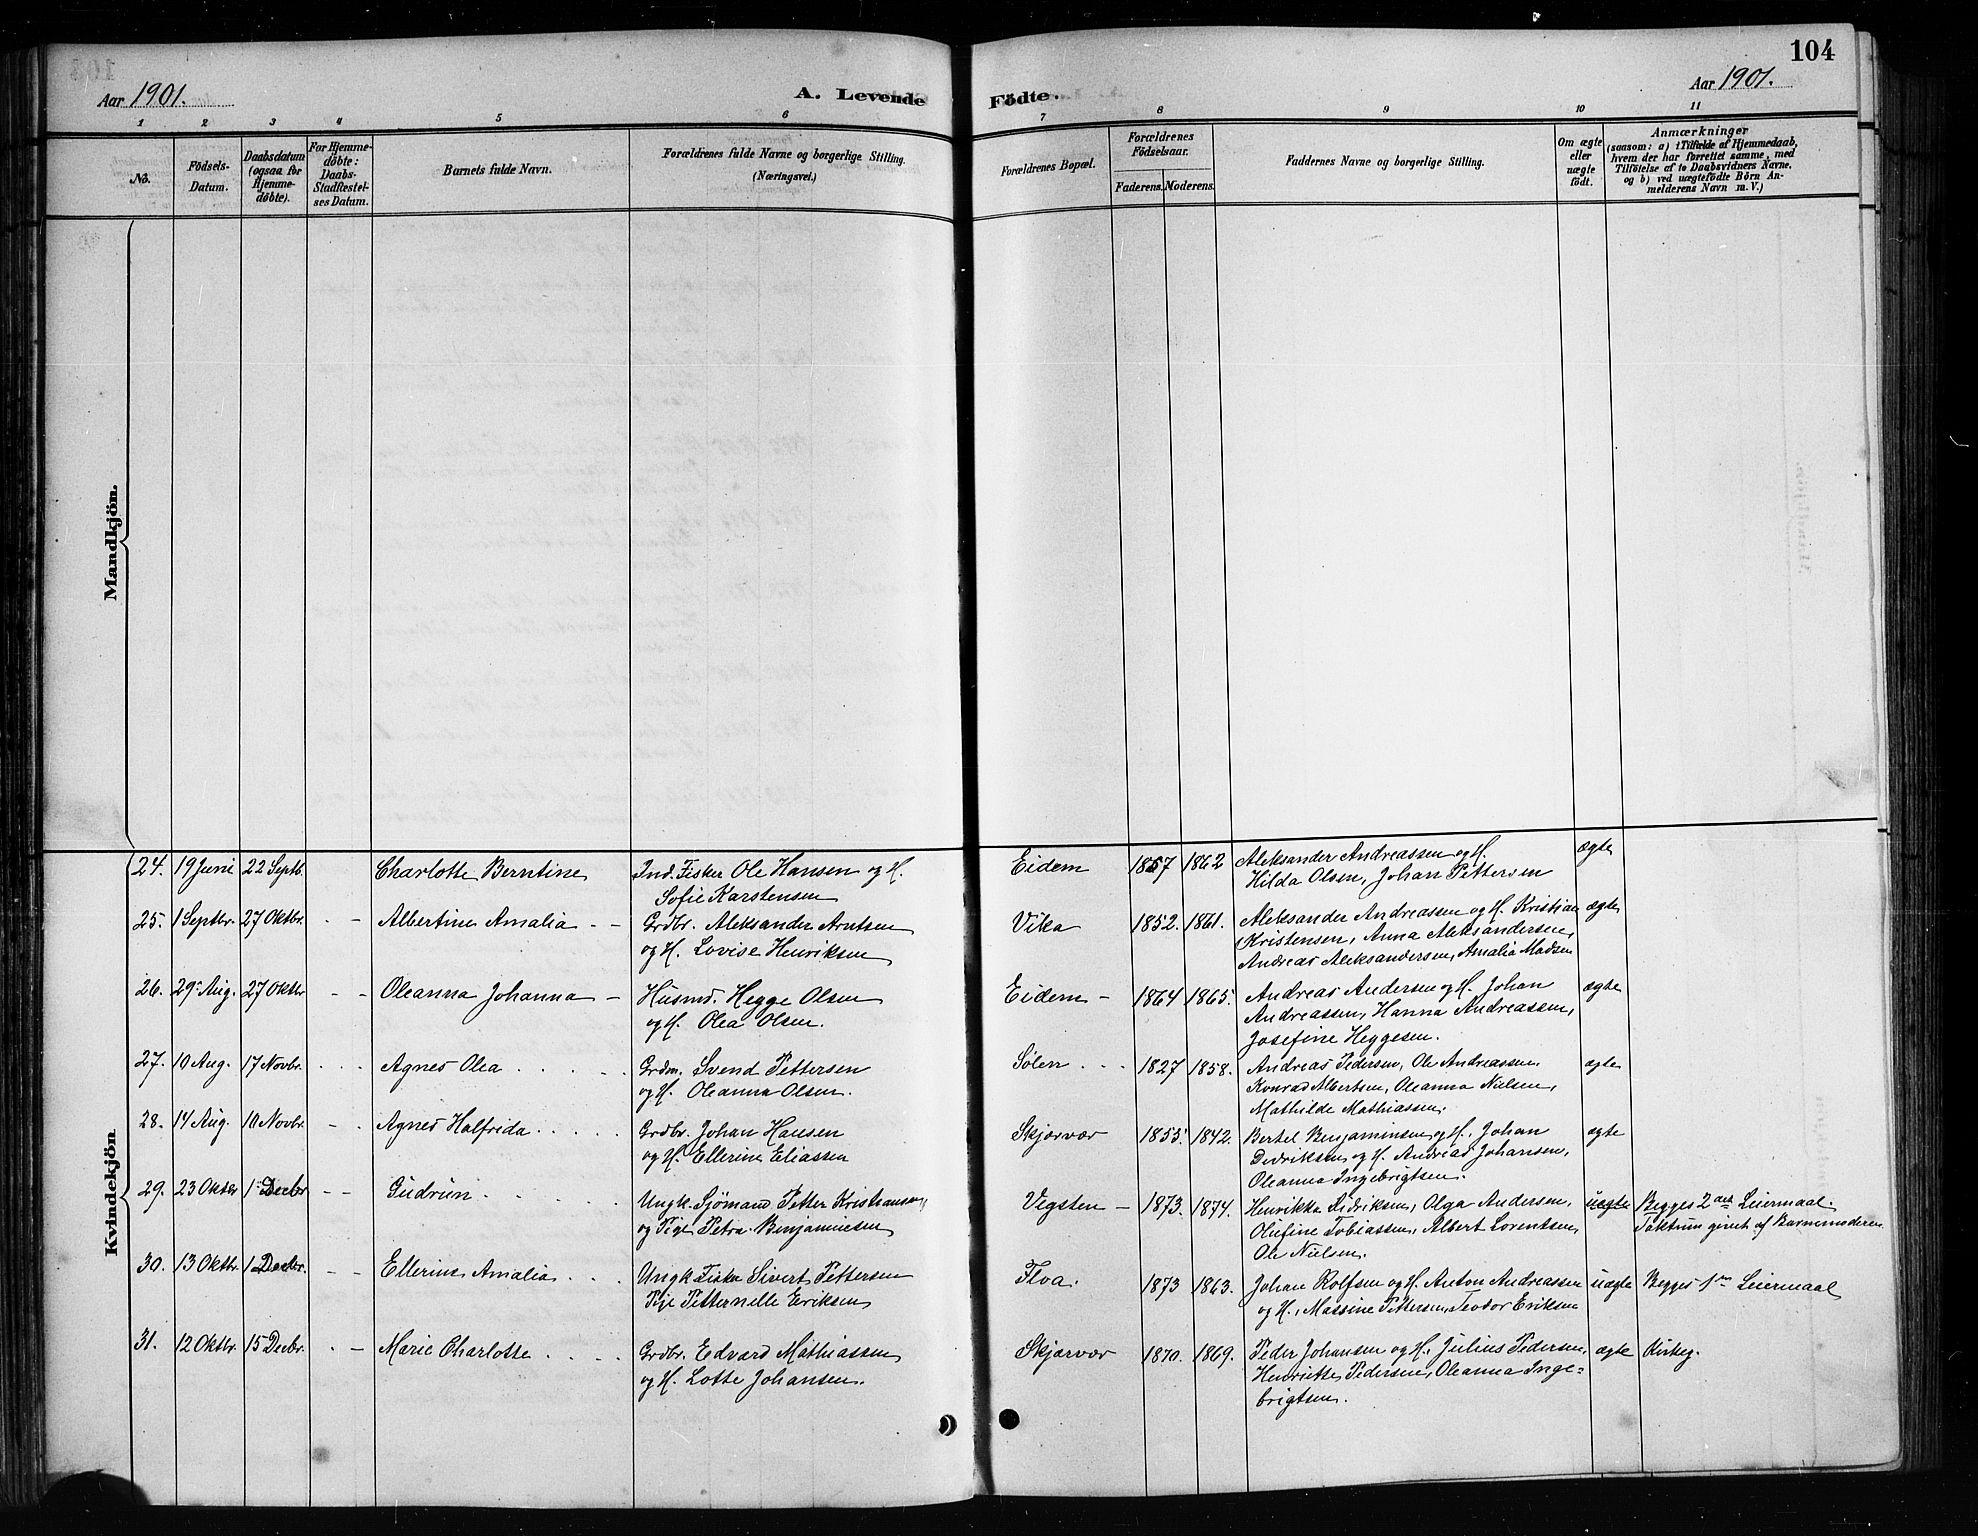 104
Aar 1901.
A. Levende Födte.
Aar 1901.
1 2 3 4 5 6 7 8 9 10 11
No.
Födsels-Datum.
Daabsdatum (ogsaa for Hjemmedøbte).
For Hjemmedøbte: Daabs-Stadfestelses Datum.
Barnets fulde Navn.
Forældrenes fulde Navne og borgerlige Stilling.
(Næringsvei.)
Forældrenes Bopæl.
Forældrenes Födselsaar.
Faderens. Moderens.
Faddernes Navne og borgerlige Stilling.
Om ægte eller uægte födt.
Anmærkninger
(saasom: a) i Tilfælde af Hjemmedaab,
hvem der har forrettet samme, med
Tilföielse af to Daabsvidners Navne.
og b) ved uægtefödte Börn An-
melderens Navn m. V.)
Mandkjön.
Kvindekjön
24. 19 Juni 22 Septb. Charlotte Berntine Ind. Fisker Ole Hansen og H. Eidem 1857 1862 Aleksander Andreassen og H. ægte
Sofie Karstensen Hilda Olsen, Johan Pettersen
25. 1 Septbr. 27 Oktbr. - - Albertine Amalia - - Grdbr. Aleksander Arntsen Vika 1852. 1861. Aleksander Andreassen og H. Kristian ægte
og H. Lovise Henriksen Kristensen, Anna Aleksandersen,
Andreas Aleksandersen, Amalia Madsen
26. 29 Aug. 27 Oktbr - - Oleanna Johanna - Husmd. Hegge Olsen Eidem - 1864 1865. Andreas Andersen og H. Johan ægte
og H. Olea Olsen. Andreassen, Hanna Andreassen,
Josefine Heggesen.
27. 10 Aug. 17 Novbr. - - - Agnes Olea . . . . Grdm. Svend Pettersen Sølen . . . 1827 1858. Andreas Pedersen, Ole Andreassen ægte
og H. Oleanna Olsen. Konrad Albertsen, Oleanna Nielsen,
Mathilde Mathiassen.
28. 14 Aug. 10 Novbr. - . Agnes Halfrida . . . . . Grdbr. Johan Hansen Skjærvær 1855. 1842. Bertel Benjaminsen og H. Johan ægte
og H. Ellerine Eliassen Dedriksen og H. Andreas Johansen,
Oleanna Ingebrigtsen.
29. 23 Oktbr 1 Decbr - - Gudrun . . . . . Ungk. Sjömand Petter Kristiansen Vegsten - 1873. 1874. Henrikke Didriksen, Olga Andersen, uægte Begges 2det Leiermaal.
og Pige Petra Benjaminsen Olufine Tobiassen, Albert Lorentsen, Faktum givet af Barnemoderen
Ole Nielsen.
30. 13 Oktbr 1 Decbr. - - Ellerine Amalia . . . Ungk Fisker Sivert Pettersen Flva. 1873 1863. Johan Rolfsen og H. Anton Andreassen uægte Begges 1ste Leiermaal
Pige Petternelle Eriksen og H., Massine Pettersen, Teodor Eriksen
31. 12 Oktbr. 15 Decbr. . - Marie Charlotte . . . . Grdbr. Edvard Mathiassen Skjærvær 1870. 1869. Peder Johansen og H., Julius Pedersen, ægte Kirkeg.
og H. Lotte Johansen. Henriette Pedersen, Oleanna Inge=
brigtsen.